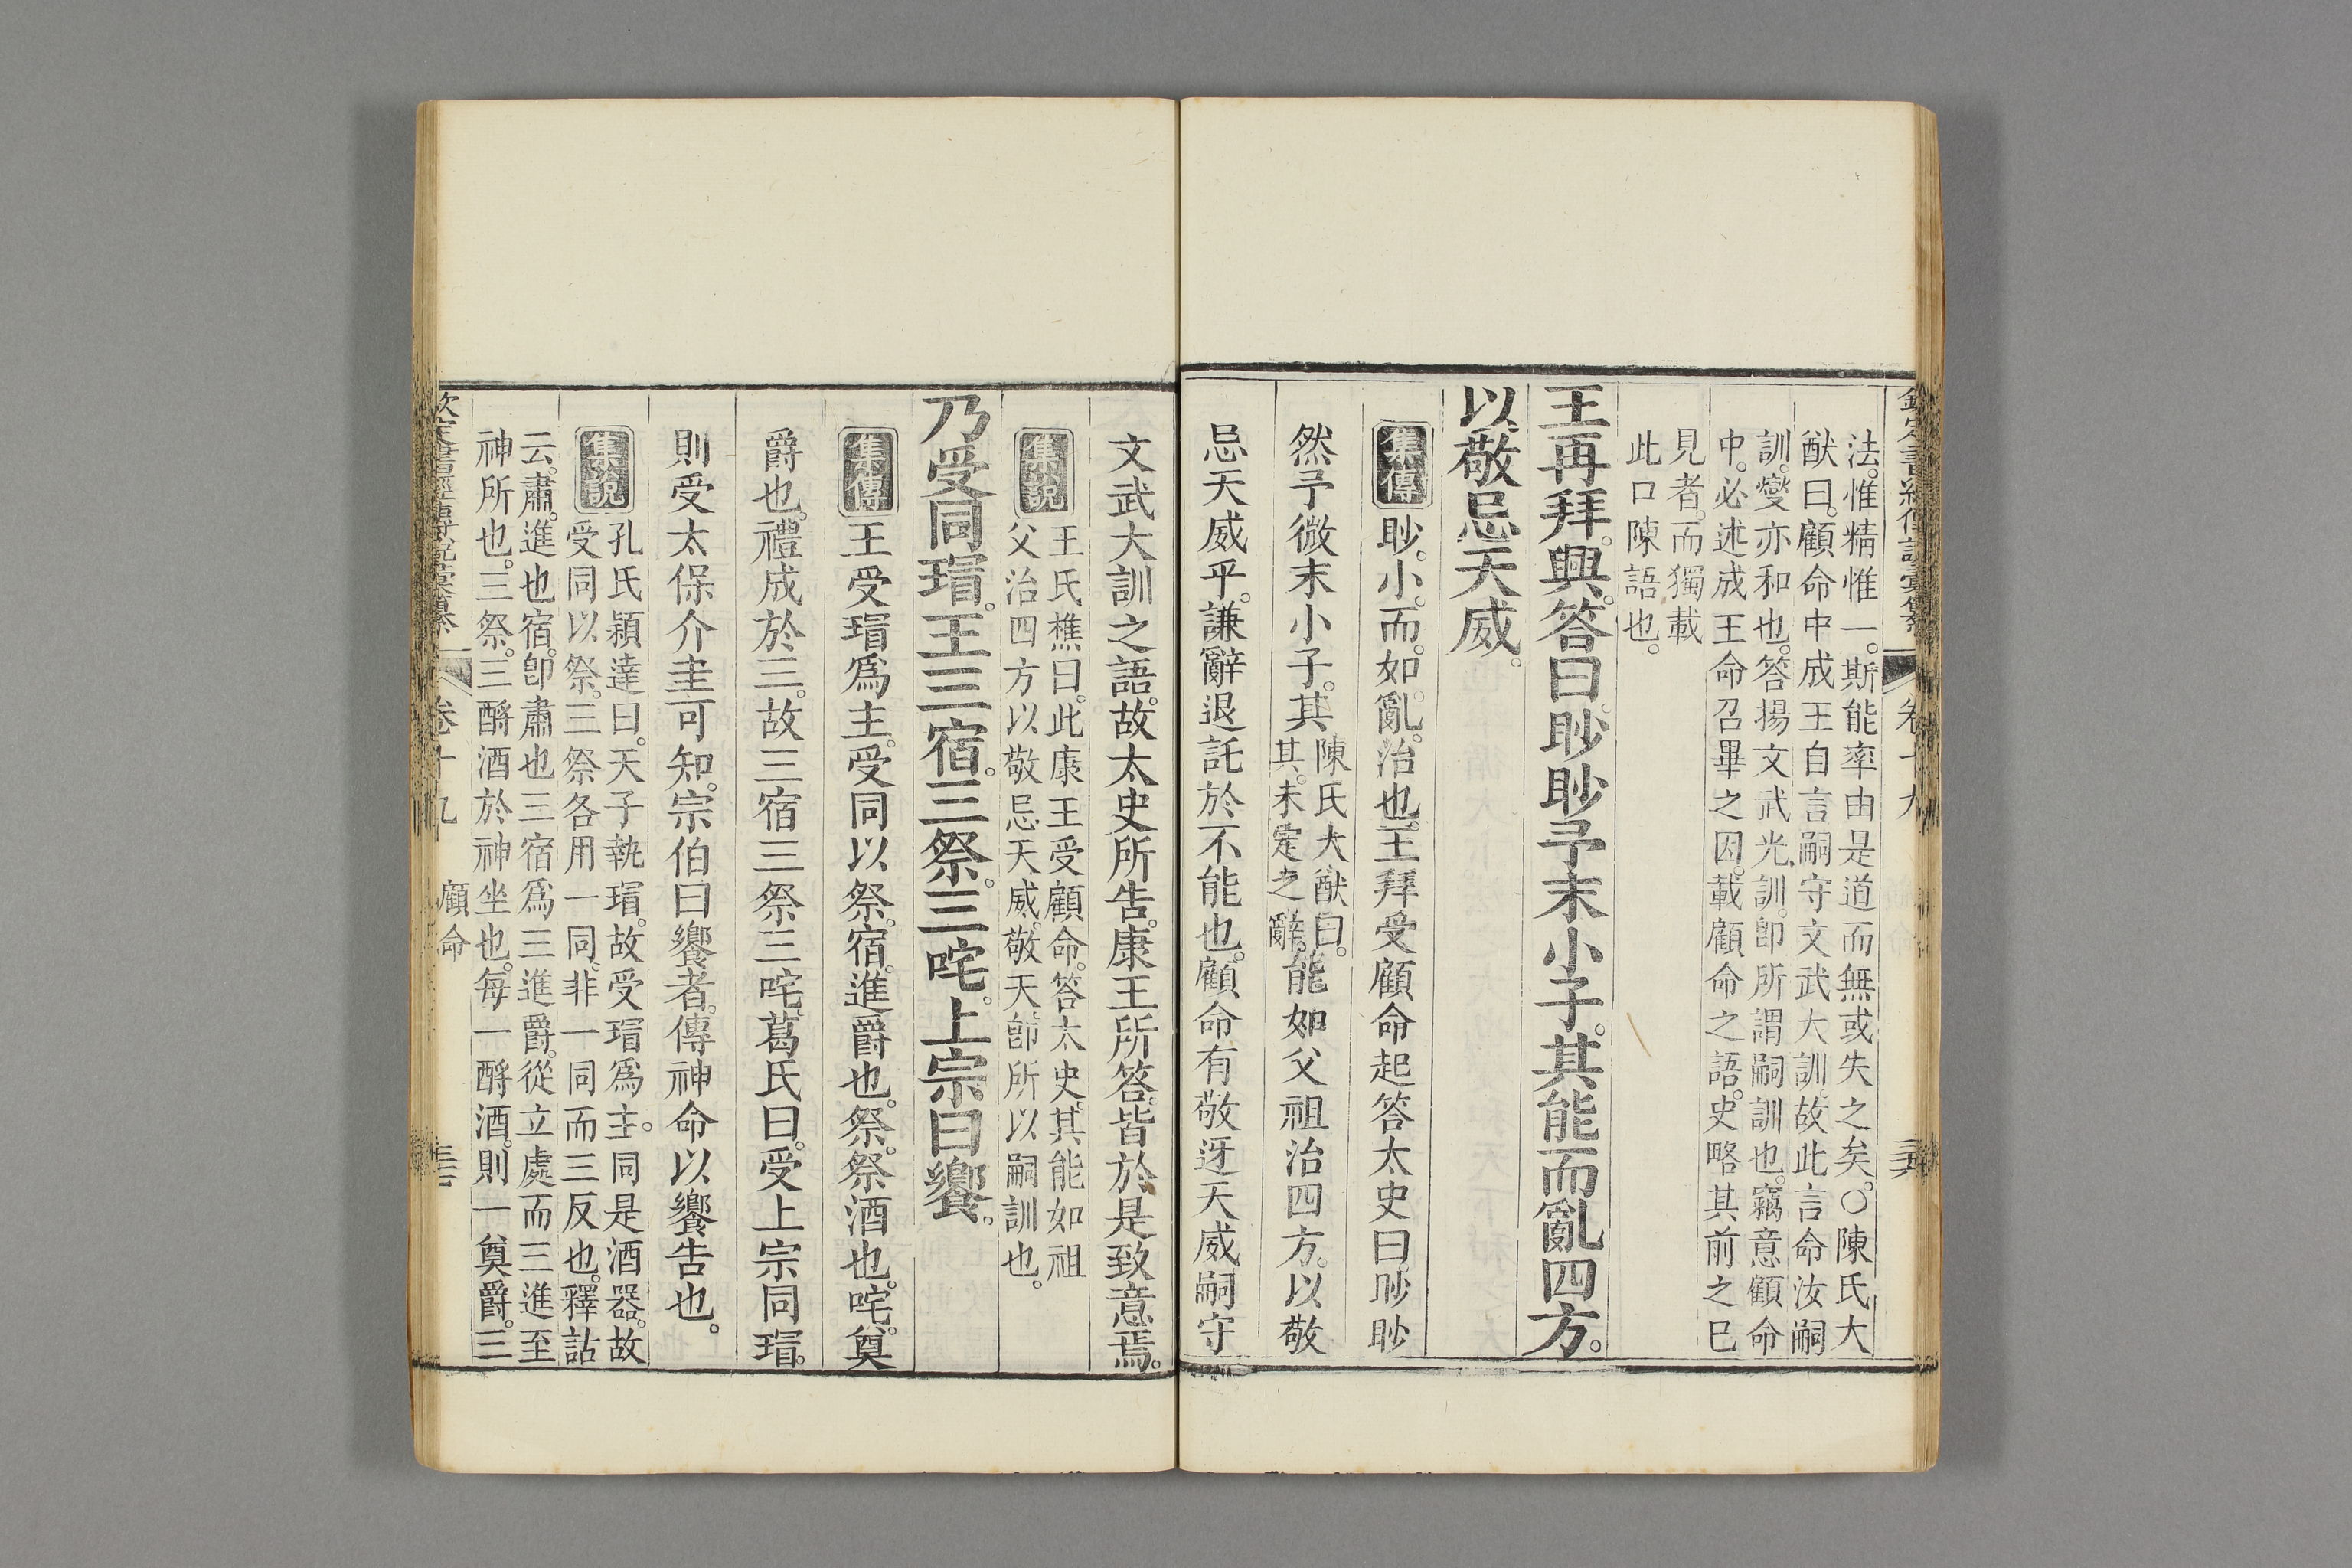 法。惟精惟一。斯能率由是道而無或失之矣。○陳氏大
猷曰。顧命中成王自言嗣守文武大訓。故此言命汝嗣
訓。變亦和也。答揚文武光訓。卽所謂嗣訓也。竊意顧命
中。必述成王命召畢之因。載顧命之語。史略其前之已
見者。而獨載
此口陳語也。
王再拜。興。答曰。眇眇予末小子。其能而亂四方。
以敬忌天威。
集傳 眇。小。而。如。亂。治也。王拜受顧命起答太史曰。眇眇
然予微末小子。其陳氏大猷曰。其。未定之辭。能如父祖治四方。以敬
忌天威乎。謙辭退託於不能也。顧命有敬迓天威嗣守
文武大訓之語。故太史所告。康王所答。皆於是致意焉。
集說 王氏樵曰。此康王受顧命。答太史。其能如祖
父治四方以敬忌天威。敬天。卽所以嗣訓也。
乃受同瑁。王三宿。三祭。三咤。上宗曰饗。
集傳 王受瑁爲主。受同以祭。宿。進爵也。祭。祭酒也。咤。奠
爵也。禮成於三。故三宿三祭三咤。葛氏曰。受上宗同瑁。
則受太保介圭可知。宗伯曰饗者。傳神命以饗告也。
集說 孔氏穎達曰。天子執瑁。故受瑁爲主。同是酒器。故
受同以祭。三祭各用一同。非一同而三反也。釋詁
云。肅。進也。宿。卽肅也。三宿爲三進爵。從立處而三進至
神所也。三祭。三酹酒於神坐也。每一酹酒。則一奠爵。三
欽定書經傳說彙纂 卷十九 顧命